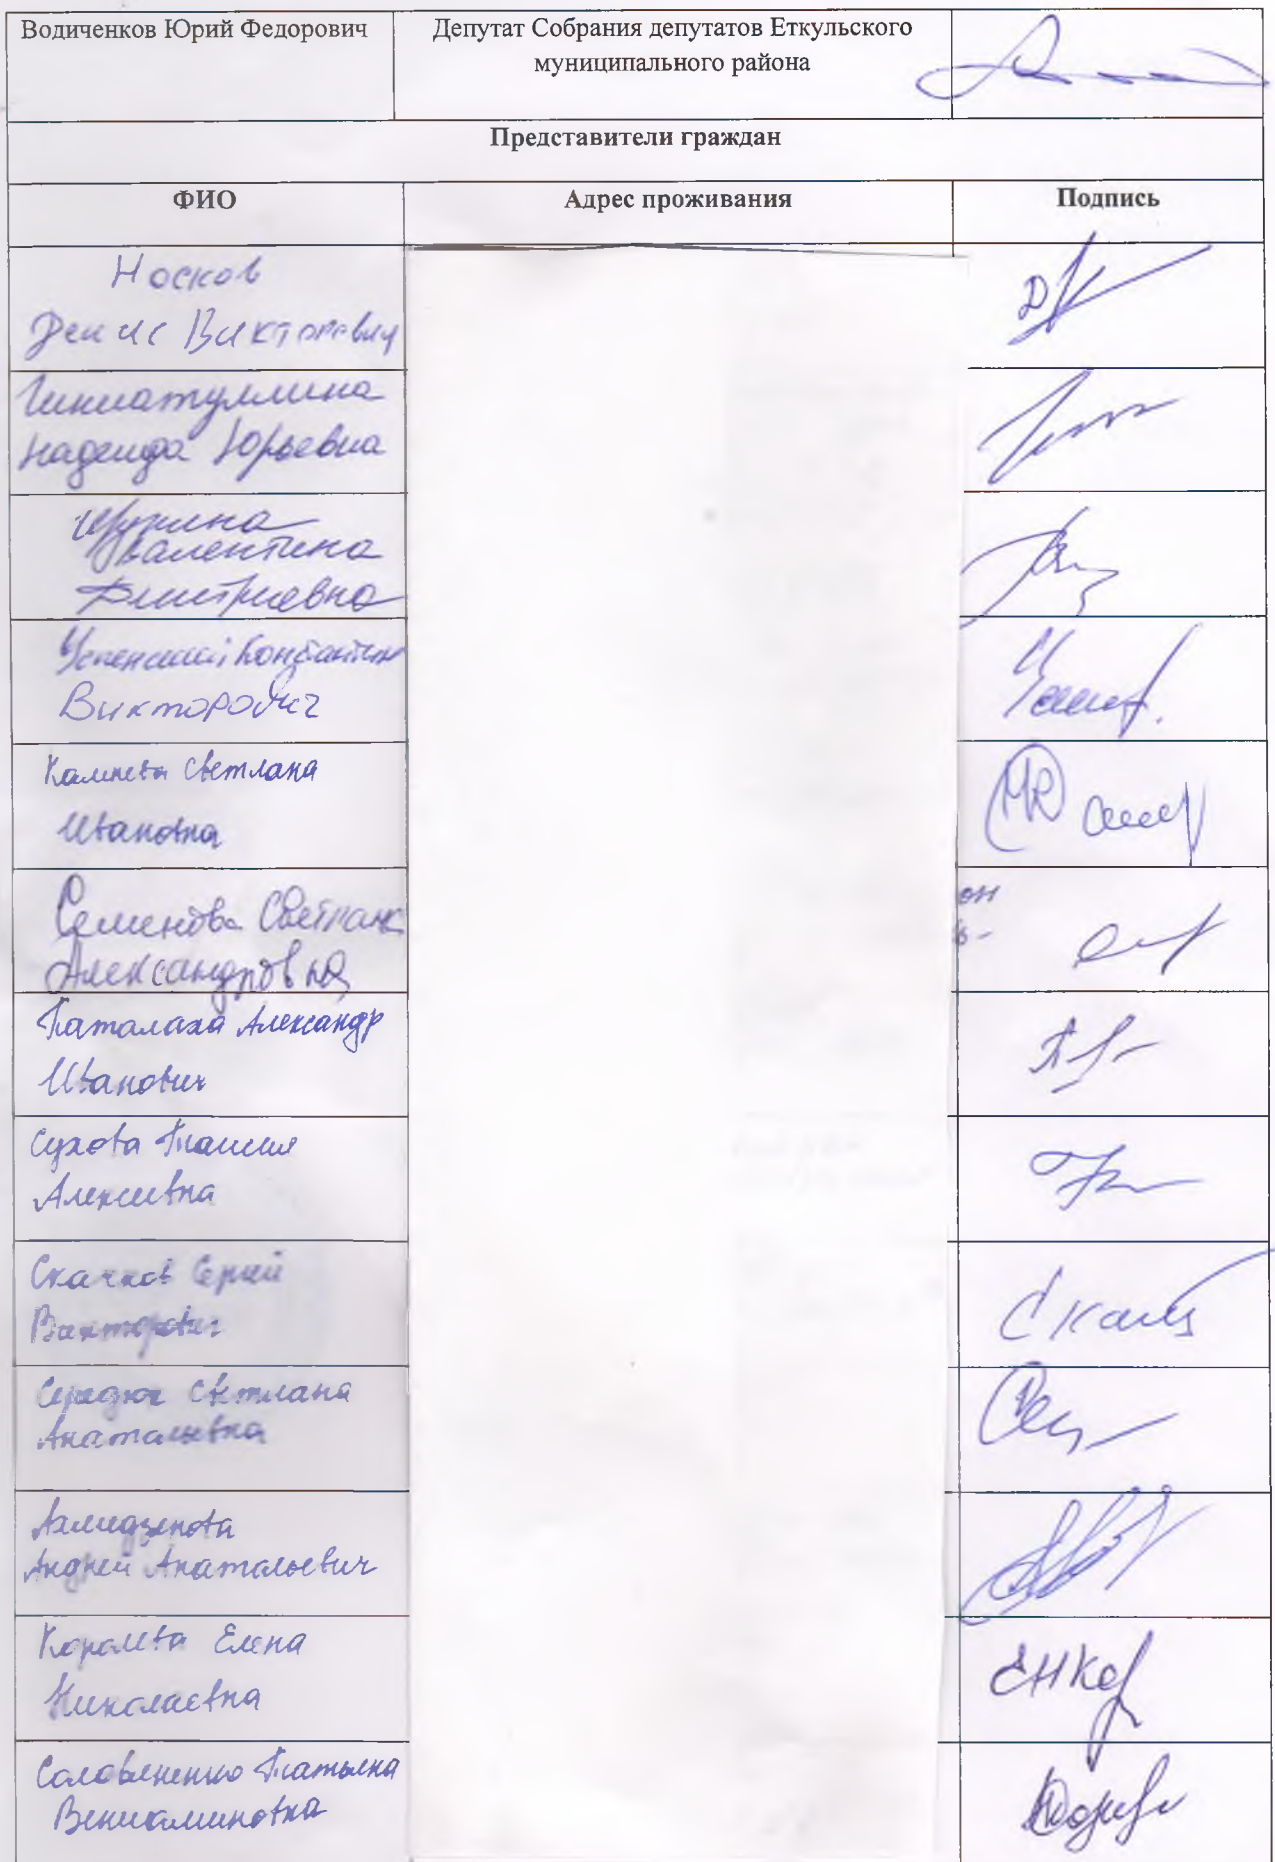 Водиченков Юрий Федорович
Депутат Собрания депутатов Еткульского
муниципального района
Представители граждан
ФИО
Адрес проживания
Подпись
Носков
Денис Викторович
Гиниатуллина
Надежда Юрьевна
Валентина
Дмитриевна
Успенский Константин
Викторович
Светлана
Ивановна
Семенова Светлана
Александровна
Паталаха Александр
Иванович
Сухова Таисия
Алексеевна
Скачков Сергей
Викторович
Середюк Светлана
Анатольевна
Андрей Анатольевич
Королева Елена
Николаевна
Соловьененко Татьяна
Вениаминовна